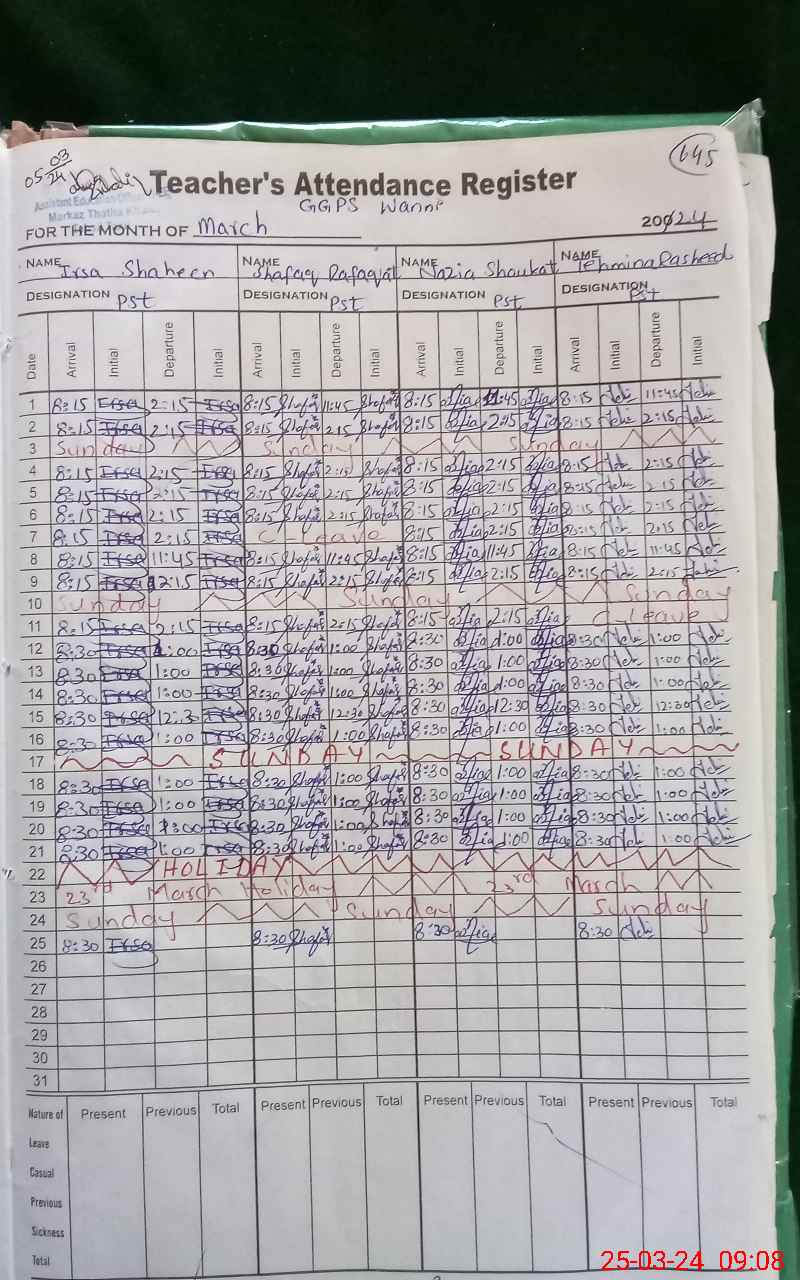 05 03/24
645
Teacher's Attendance Register
Assistant Education
Markaz Thatha
GGPS Wanni
FOR THE MONTH OF March 2024
NAME Irsa Shaheen NAME Shafaq Rafaqat NAME Nazia Shoukat NAME Tehmina Rasheed
DESIGNATION Pst DESIGNATION Pst DESIGNATION Pst DESIGNATION Pst
Date Arrival Initial Departure Initial Arrival Initial Departure Initial Arrival Initial Departure Initial Arrival Initial Departure Initial
1 8:15 Irsa 2:15 Irsa 8:15 Shafaq 11:45 Shafaq 8:15 11:45 8:15 11:45
2 8:15 Irsa 2:15 Irsa 8:15 Shafaq 2:15 Shafaq 8:15 2:15 8:15 2:15
3 Sunday Sunday Sunday
4 8:15 Irsa 2:15 Irsa 8:15 Shafaq 2:15 Shafaq 8:15 2:15 8:15 2:15
5 8:15 Irsa 2:15 Irsa 8:15 Shafaq 2:15 Shafaq 8:15 2:15 8:15 2:15
6 8:15 Irsa 2:15 Irsa 8:15 Shafaq 2:15 Shafaq 8:15 2:15 8:15 2:15
7 8:15 Irsa 2:15 Irsa C-Leave 8:15 2:15 8:15 2:15
8 8:15 Irsa 11:45 Irsa 8:15 Shafaq 11:45 Shafaq 8:15 11:45 8:15 11:45
9 8:15 Irsa 2:15 Irsa 8:15 Shafaq 2:15 Shafaq 8:15 2:15 8:15 2:15
10 Sunday Sunday Sunday
11 8:15 Irsa 2:15 Irsa 8:15 Shafaq 2:15 Shafaq 8:15 2:15 C Leave
12 8:30 Irsa 1:00 Irsa 8:30 Shafaq 1:00 Shafaq 8:30 1:00 8:30 1:00
13 8:30 Irsa 1:00 Irsa 8:30 Shafaq 1:00 Shafaq 8:30 1:00 8:30 1:00
14 8:30 Irsa 1:00 Irsa 8:30 Shafaq 1:00 Shafaq 8:30 1:00 8:30 1:00
15 8:30 Irsa 12:3 Irsa 8:30 Shafaq 12:30 Shafaq 8:30 12:30 8:30 12:30
16 8:30 Irsa 1:00 Irsa 8:30 Shafaq 1:00 Shafaq 8:30 1:00 8:30 1:00
17 SUNDAY SUNDAY
18 8:30 Irsa 1:00 Irsa 8:30 Shafaq 1:00 Shafaq 8:30 1:00 8:30 1:00
19 8:30 Irsa 1:00 Irsa 8:30 Shafaq 1:00 Shafaq 8:30 1:00 8:30 1:00
20 8:30 Irsa 1:00 Irsa 8:30 Shafaq 1:00 Shafaq 8:30 1:00 8:30 1:00
21 8:30 Irsa 1:00 Irsa 8:30 Shafaq 1:00 Shafaq 8:30 1:00 8:30 1:00
22 HOLIDAY
23 23rd March Holiday 23rd March
24 Sunday Sunday Sunday
25 8:30 Irsa 8:30 Shafaq 8:30 8:30
26
27
28
29
30
31
Nature of Present Previous Total Present Previous Total Present Previous Total Present Previous Total
Leave
Casual
Previous
Sickness
Total
25-03-24 09:08